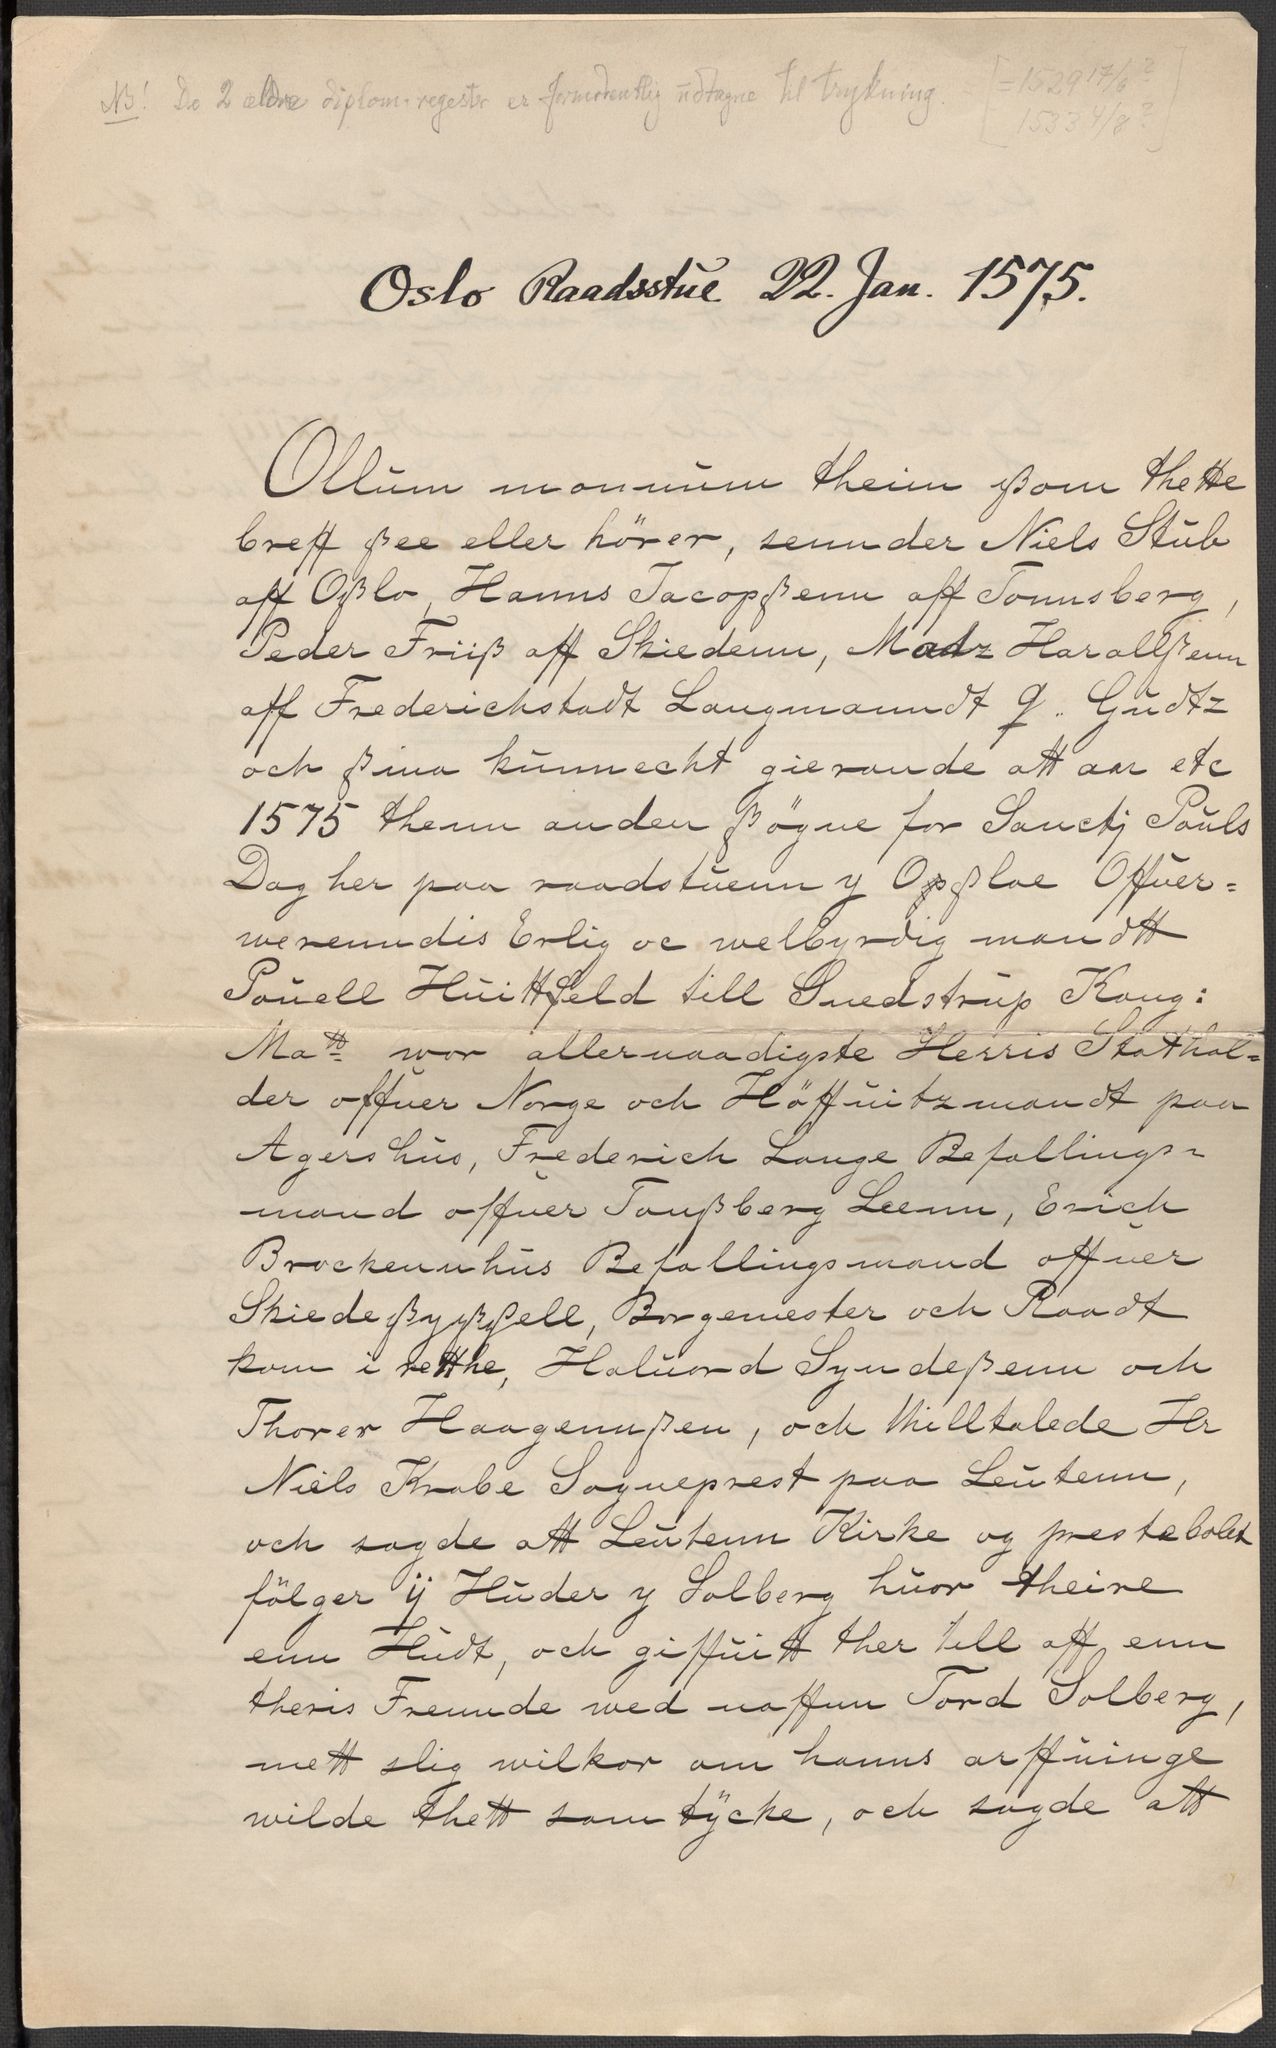 NB! De 2 ældre diplom-regester er formodentlig udtagne til trykning. [= 1529 17/6 ?
1533 4/8 ?]
Oslo Raadsstue 22. Jan. 1575.
Ollum monnum theim ßom thette
breff ßee eller hörer, sennder Niels Stub
aff Oßlo, Hanns Jacopßenn aff Tonnsberg,
Peder Friiß aff Skiedenn, Madz Harallßenn
aff Frederichstadt Laugmanndt q. Gudtz
och ßina kunnecht gierande att aar etc
1575 thenn anden ßögne for Sanctj Pouls
Dag her paa raadstuenn y Opßloe Offuer=
werenndis Erlig oc welbyrdig mandtt
Pouell Huittfeld till Snedstrup Kong:
Matt= wor allernaadigste Herris Stathol=
der offuer Norge och Höffuitzmandt paa
Agershus, Frederich Lange Befallings=
mand offuer Tonßberg Leenn, Erich
Brockennhus Befallingsmand offuer
Skiedeßyßßell, Borgemester och Raadt
kom i retthe, Haluord Syndeßenn och
Thorer Haagennßen, och thilltalede Hr
Niels Krabe Sogneprest paa Leutenn,
och sagde att Leutenn Kirke og prestebolet
fölger ij Huder y Solberg huor theire
enn Hudt, och giffuitt ther till aff enn
theris Freunde wed naffnn Tord Solberg,
mett slig wilkor om hanns arffuinge
wilde thett samtÿcke, och sagde att